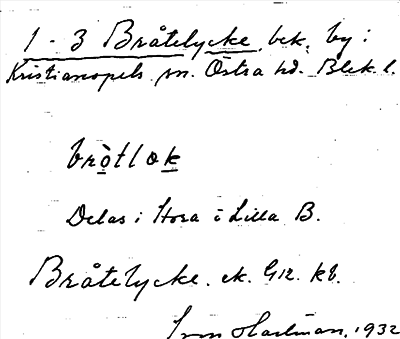 1 - 3 Bråtelycke, bek. by:
Kristianopels sn. Östra hd. Blek. l.
bròtlǝk
Delas i Stora o Lilla B.
Bråtelycke. ek. G12. kb.
Ivan Hartman, 1932